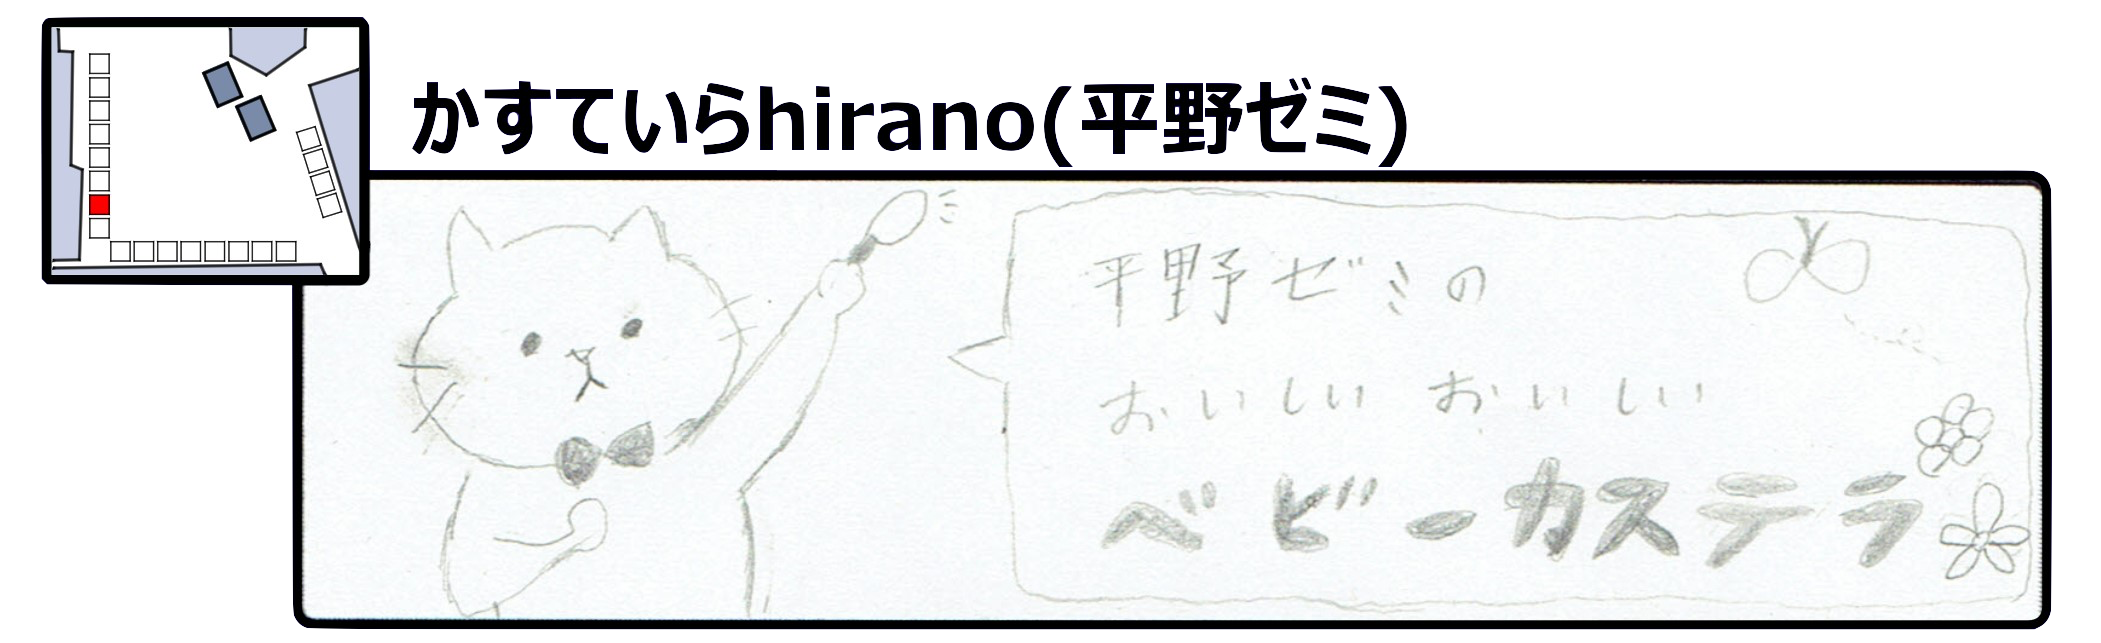 かすていらhirano(平野ゼミ)
平野ゼミの
おいしいおいしい
ベビーカステラ